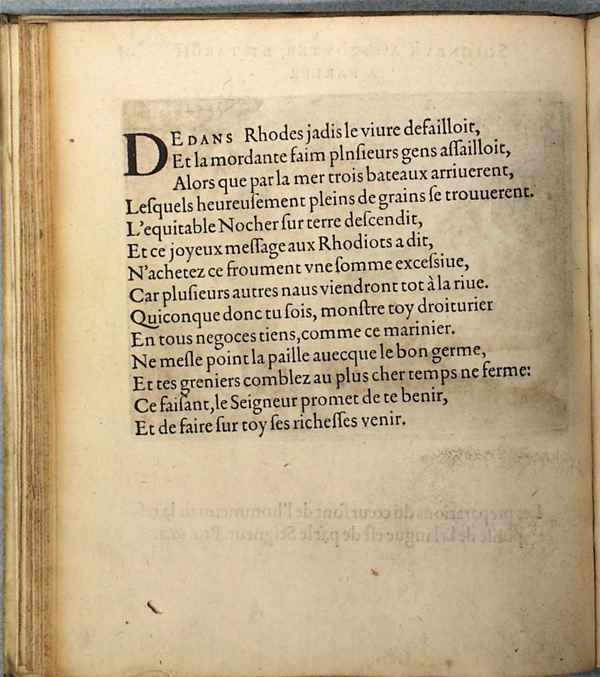 DEDANS Rhodes jadis le viure defailloit,
Et la mordante faim plnſieurs gens aſſailloit,
Alors que par la mer trois bateaux arriuerent,
Leſquels heureuſement pleins de grains ſe trouuerent.
L'equitable Nocher ſur terre deſcendit,
Et ce joyeux meſſage aux Rhodiots a dit,
N'achetez ce froument vne ſomme exceſsiue,
Car pluſieurs autres naus viendront tot à la riue.
Quiconque donc tu ſois, monſtre toy droiturier
En tous negoces tiens, comme ce marinier.
Ne meſle point la paille auecque le bon germe,
Et tes greniers comblez au plus cher temps ne ferme:
Ce faiſant, le Seigneur promet de te benir,
Et de faire ſur toy ſes richeſſes venir.